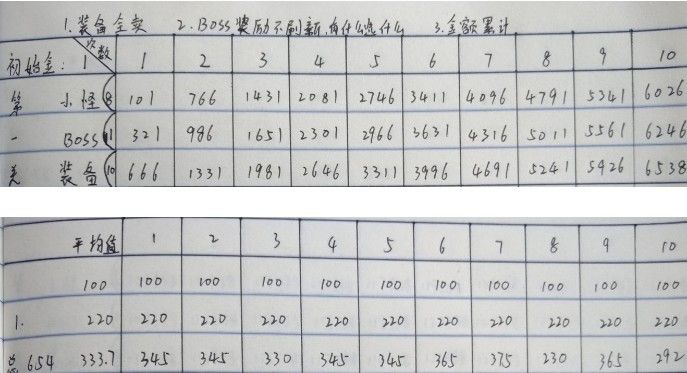 1. 装备全卖 2. BOSS奖励不刷新,有什么选什么 3. 金额累计
初始金:1 次数 1 2 3 4 5 6 7 8 9 10
第 小怪 8 101 766 1431 2081 2746 3411 4096 4791 5341 6026
一 BOSS 11 321 986 1651 2301 2966 3631 4316 5011 5561 6246
关 装备 10 666 1331 1981 2646 3311 3996 4691 5241 5926 6538
平均值 1 2 3 4 5 6 7 8 9 10
100 100 100 100 100 100 100 100 100 100 100
1. 220 220 220 220 220 220 220 220 220 220 220
总 654 333.7 345 345 330 345 345 365 375 230 365 292